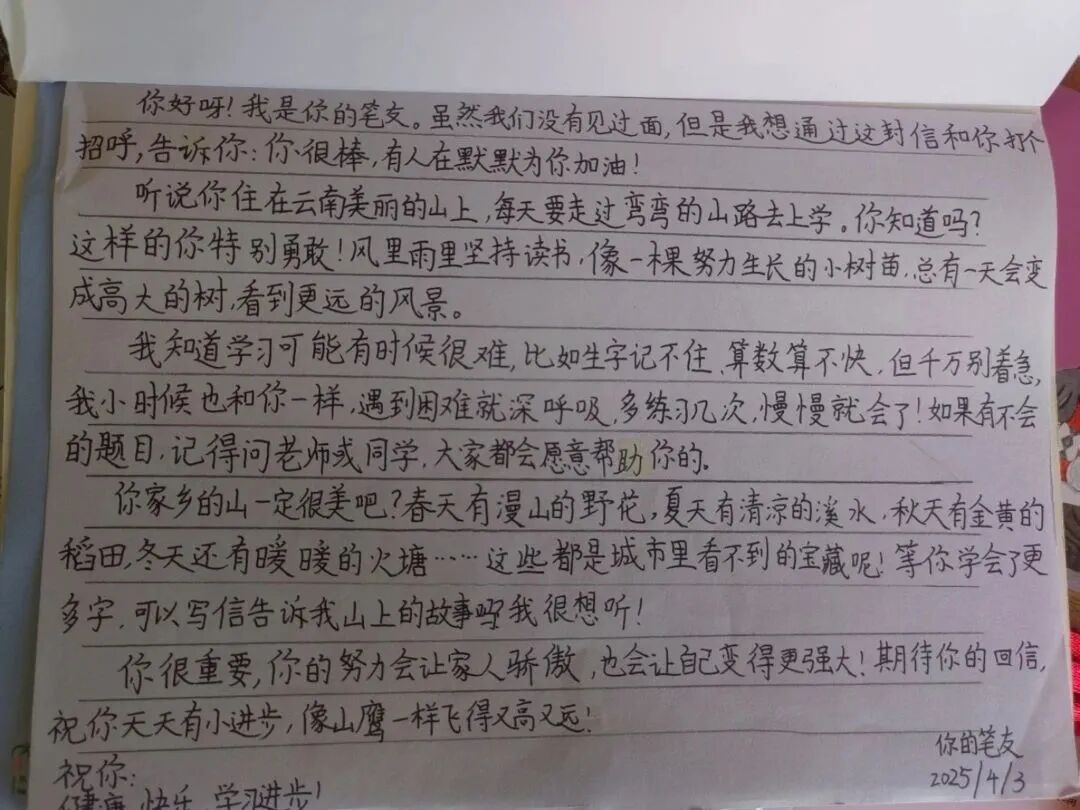 你好呀！我是你的笔友。虽然我们没有见过面，但是我想通过这封信和你打个
招呼，告诉你：你很棒，有人在默默为你加油！
听说你住在云南美丽的山上，每天要走过弯弯的山路去上学。你知道吗？
这样的你特别勇敢！风里雨里坚持读书，像一棵努力生长的小树苗，总有一天会变
成高大的树，看到更远的风景。
我知道学习可能有时候很难，比如生字记不住、算数算不快，但千万别着急，
我小时候也和你一样，遇到困难就深呼吸，多练习几次，慢慢就会了！如果有不会
的题目，记得问老师或同学，大家都会愿意帮助你的。
你家乡的山一定很美吧？春天有漫山的野花，夏天有清凉的溪水，秋天有金黄的
稻田，冬天还有暖暖的火塘……这些都是城市里看不到的宝藏呢！等你学会了更
多字，可以写信告诉我山上的故事吗？我很想听！
你很重要，你的努力会让家人骄傲，也会让自己变得更强大！期待你的回信，
祝你天天有小进步，像山鹰一样飞得又高又远！
你的笔友
2025/4/3
祝你：
健康、快乐、学习进步！